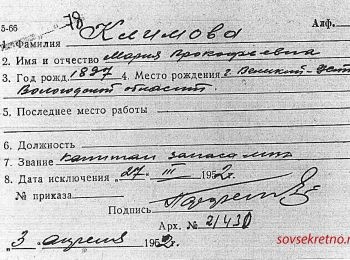 5-66
78
Алф.
1. Фамилия Климова
2. Имя и отчество Мария Прокофьевна
3. Год рожд. 1897 4. Место рождения г. Великий-Уст
Вологодской области
5. Последнее место работы
6. Должность
7. Звание капитан запаса
8. Дата исключения "27" III 1952г.
№ приказа
Подпись
Арх. № 21430
"3" апреля 1952г.
sovsekretno.r